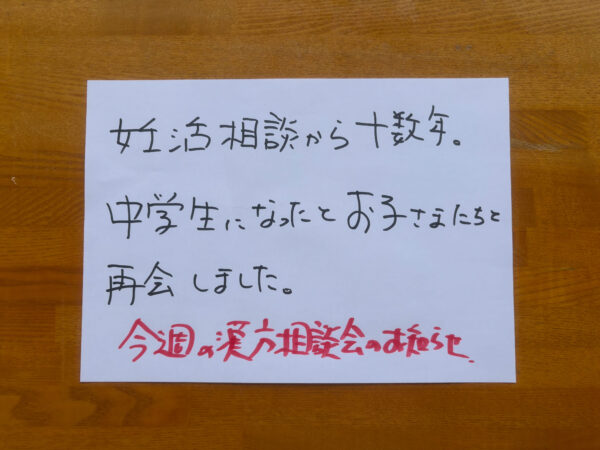 妊活相談から十数年。
中学生になったとお子さまたちと
再会しました。
今週の漢方相談会のお知らせ.